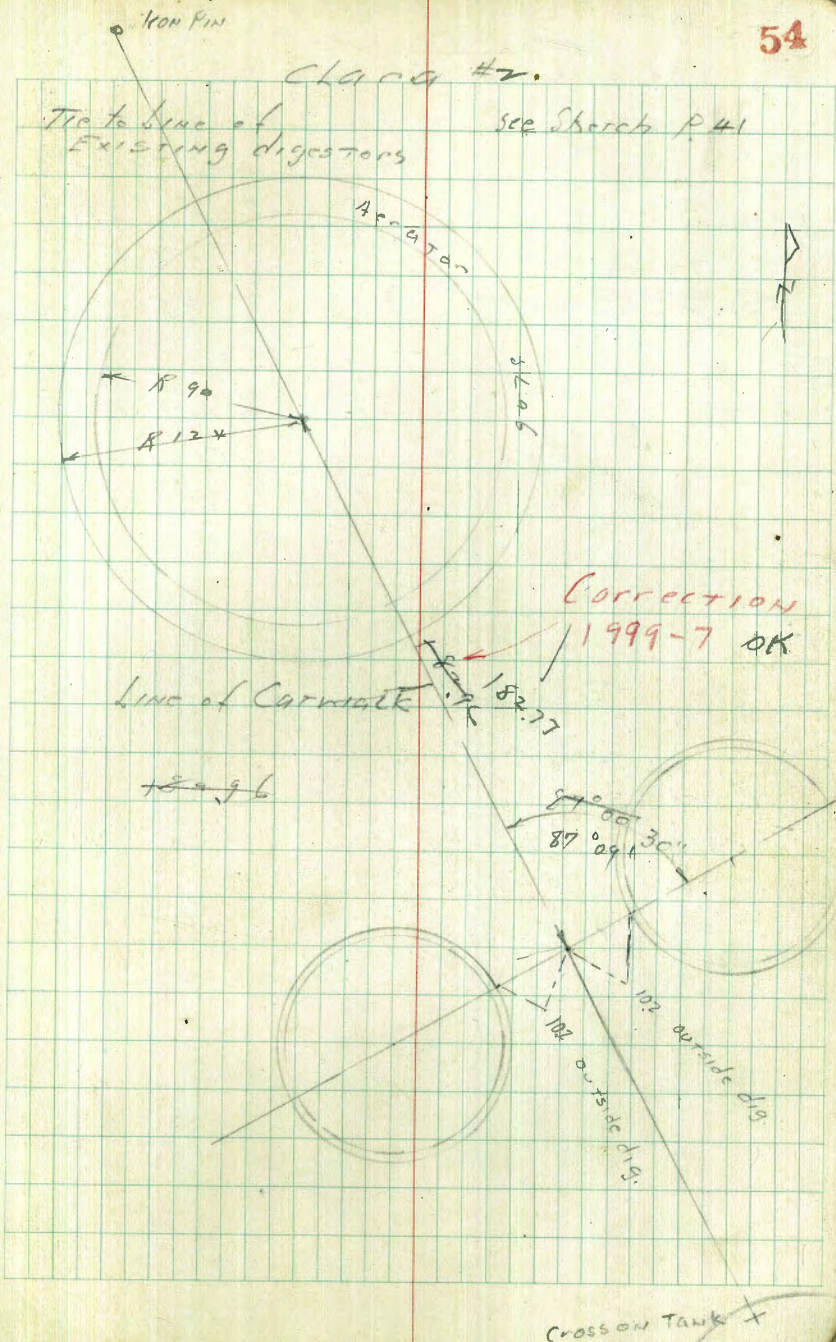 54
IRON PIN
Clara #2.
Tie to Line of
Existing digestors
see Sketch P. 41
Aerator
Slab
N
R 90
R 12
Correction
1999-7 OK
182.77
Line of Catwalk
87° 09' 30"
102 outside dig.
102 outside dig.
Cross on Tank